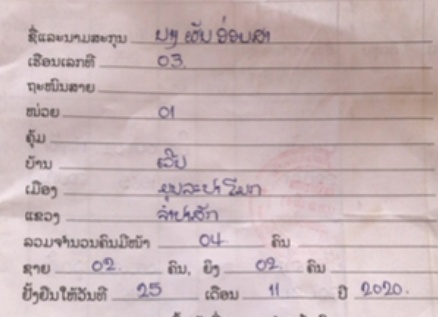 ຊື່ແລະນາມສະກຸນ ນາງ ເວີນ ອ່ອນສາ
ເຮືອນເລກທີ 03.
ຖະໜົນສາຍ
ໜ່ວຍ 01
ຄຸ້ມ
ບ້ານ
ເມືອງ
ແຂວງ ຈຳປາສັກ
ລວມຈຳນວນຄົນມີໜ້າ 04 ຄົນ
ຊາຍ 02. ຄົນ, ຍິງ 02. ຄົນ
ຢັ້ງຢືນໃຫ້ວັນທີ 25 ເດືອນ 11 ປີ 2020.